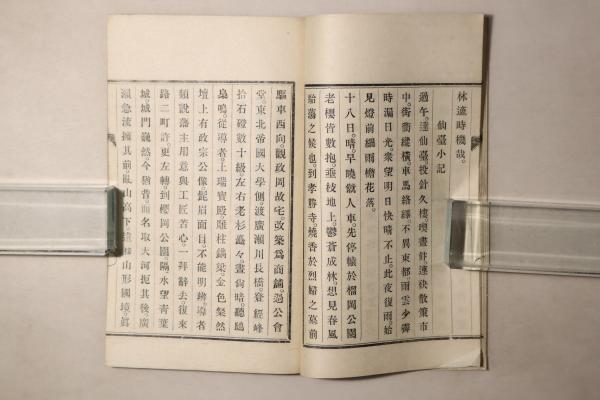 林逋時機哉。
仙臺小記
過午。達仙臺投針久樓。喫晝餠。連袂散策市
中。街衢縱橫。車馬絡繹不異東都。雨雲少霽
時漏日光。衆望明日快晴不止。此夜復雨。始
見燈前細雨檐花落。
十八日。晴。早曉僦人車。先停轅於榴岡公園
老櫻皆數抱。垂枝地上。鬱蒼成林。想見春風
駘蕩之候也。到孝勝寺。燒香於烈婦之墓前
驅車西向。觀政岡故宅。改築爲商舖。過公會
堂。東北帝國大學側。渡廣瀨川長橋。登經峰
拾石磴數十級。左右老杉矗々。晝尙晴。聽鴟
梟鳴。從導者。上瑞寶殿。雕柱鏤梁。金色粲然
壇上有政宗公像。髭眉面目。不能明辨。導者
頻說藩主用意與工匠苦心。一拜辭去。復來
路二町許。更左轉。到櫻岡公園。隔水望靑葉
城。城門巍然。今猶昔。而名取大河扼其後。廣
瀨急流擁其前。臥山高下。山形國境。眞